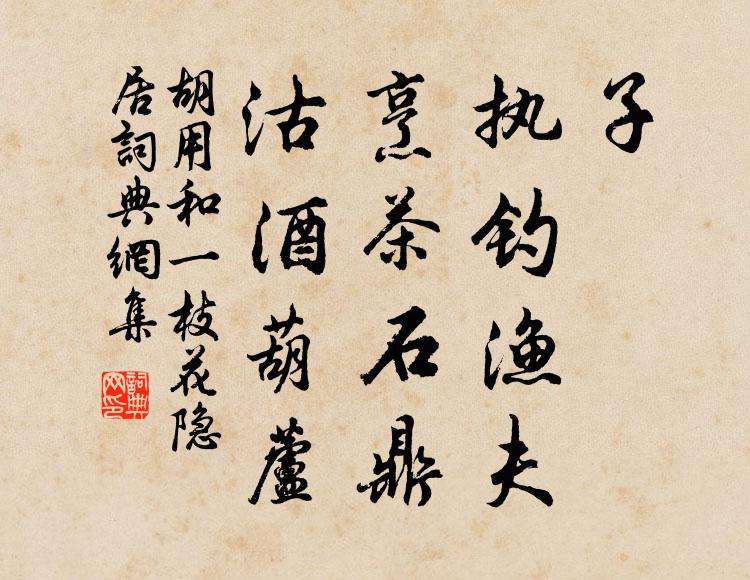 子
执钓渔夫
烹茶石鼎
沽酒葫蘆
胡用和一枝花隐
居詞典網集
詞典
网印